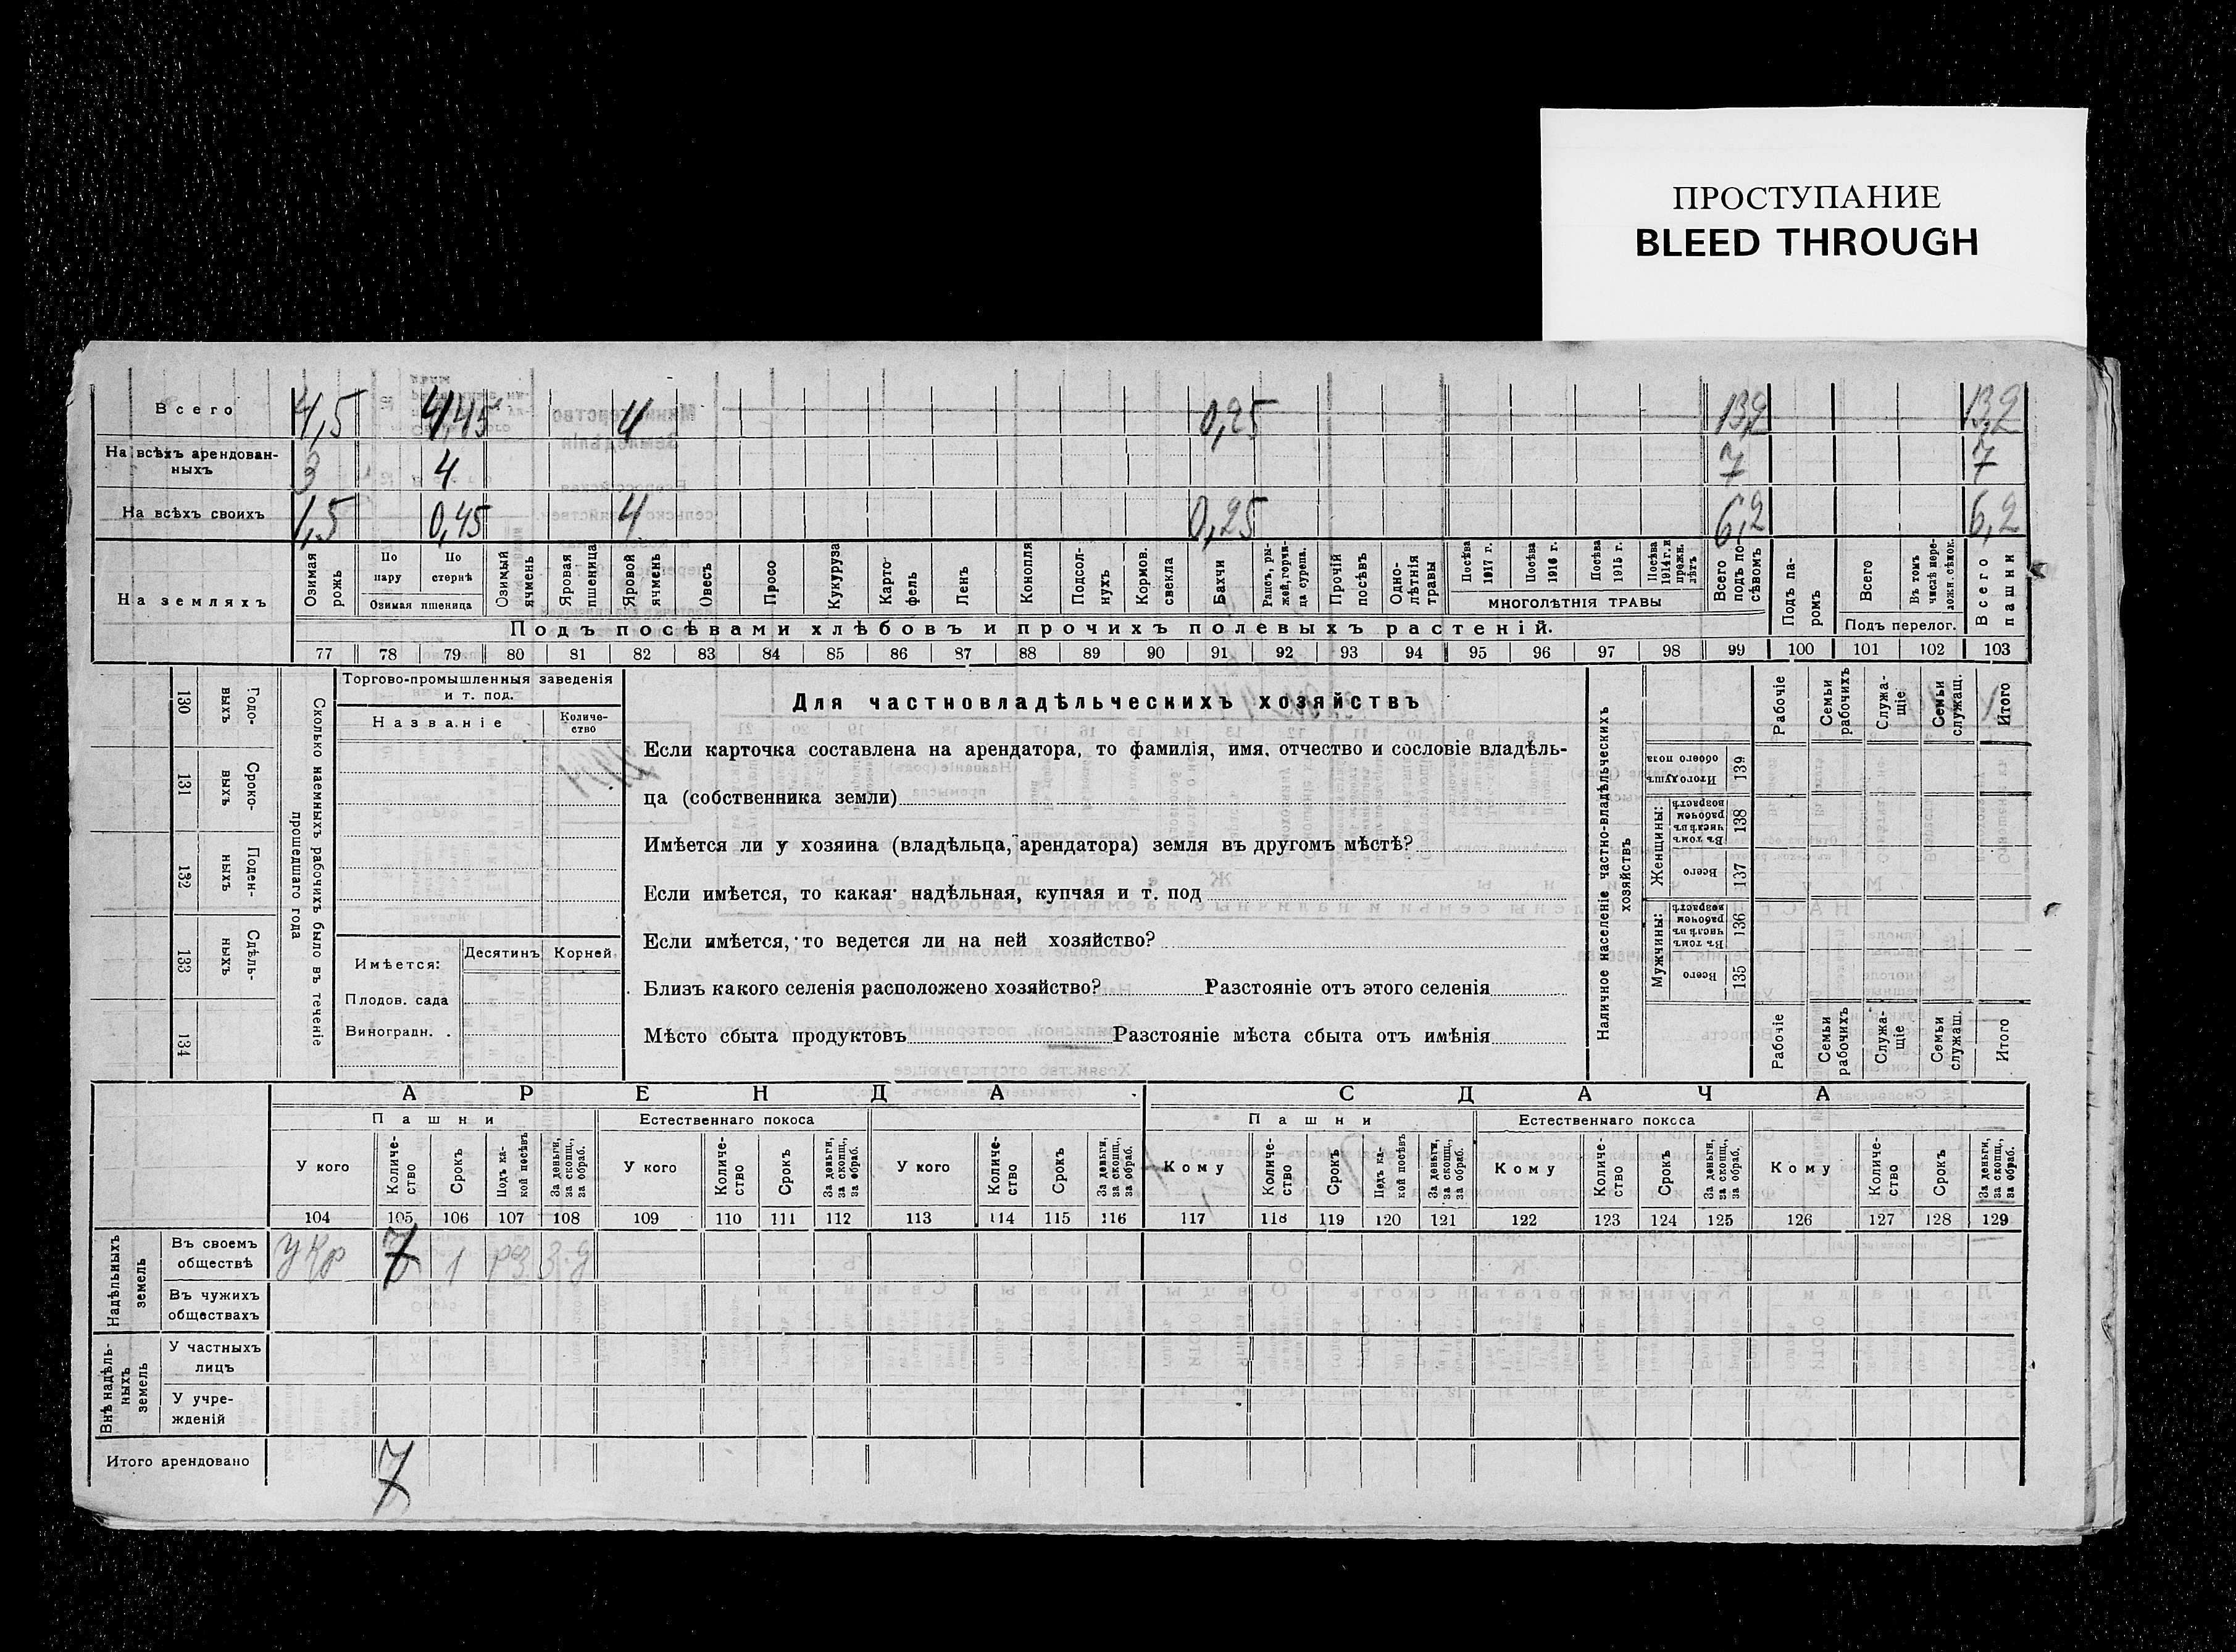 ПРОСТУПАНИЕ
BLEED THROUGH
Всего 4,5 4,45 4 0,25 13,2 13,2
На всѣхъ арендован-
ныхъ 3 4 7 7
На всѣхъ своихъ 1,5 0,45 4 0,25 6,2 6,2
На земляхъ
Озимая рожь
По пару
По стернѣ
Озимая пшеница
Озимый ячмень
Яровая пшеница
Яровой ячмень
Овесъ
Просо
Кукуруза
Карто-
фель
Ленъ
Конопля
Подсол-
нухъ
Кормов. свекла
Бахчи
Рапсъ, ры-
жей, горчи-
ца сурепа.
Прочій посѣвъ
Одно-
лѣтнія
травы
Посѣва 1917 г.
Посѣва 1916 г.
Посѣва 1915 г.
Посѣва 1914 г. и прежн. лѣтъ
МНОГОЛѢТНІЯ ТРАВЫ
Всего подъ по-
сѣвомъ
Подъ па-
ромъ
Всего
Въ томъ числѣ пере-
ложн. сѣнок.
Подъ перелог.
Всего пашни
Подъ посѣвами хлѣбовъ и прочихъ полевыхъ растеній.
77 78 79 80 81 82 83 84 85 86 87 88 89 90 91 92 93 94 95 96 97 98 99 100 101 102 103
130 Годо-
выхъ
131 Сроко-
выхъ
132 Поден-
ныхъ
133 Сдѣль-
ныхъ
134
Сколько наемныхъ рабочихъ было въ теченіе
прошедшаго года
Торгово-промышленныя заведенія
и т. под.
Названіе
Количе-
ство
Имѣется:
Десятинъ
Корней
Плодов. сада
Виноградн.
Для частновладѣльческихъ хозяйствъ
Если карточка составлена на арендатора, то фамилія, имя, отчество и сословіе владѣль-
ца (собственника земли)
Имѣется ли у хозяина (владѣльца, арендатора) земля въ другомъ мѣстѣ?
Если имѣется, то какая надѣльная, купчая и т. под
Если имѣется, то ведется ли на ней хозяйство?
Близъ какого селенія расположено хозяйство? Разстояніе отъ этого селенія
Мѣсто сбыта продуктовъ Разстояніе мѣста сбыта отъ имѣнія
Наличное населеніе частно-владѣльческихъ
хозяйствъ
Рабочіе
Семьи рабочихъ
Служа-
щіе
Семьи служащ.
Итого
Итого душъ обоего пола 139
Женщины:
Въ томъ числѣ въ рабочемъ возрастѣ 138
Всего 137
Мужчины:
Въ томъ числѣ въ рабочемъ возрастѣ 136
Всего 135
Рабочіе
Семьи рабочихъ
Служа-
щіе
Семьи служащ.
Итого
АРЕНДА
СДАЧА
Пашни
Естественнаго покоса
Пашни
Естественнаго покоса
У кого
Количе-
ство
Срокъ
Подъ ка-
кой посѣвъ
За деньги, за скопщ., за обраб.
У кого
Количе-
ство
Срокъ
За деньги, за скопщ., за обраб.
У кого
Количе-
ство
Срокъ
За деньги, за скопщ., за обраб.
Кому
Количе-
ство
Срокъ
Подъ ка-
кой посѣвъ
За деньги, за скопщ., за обраб.
Кому
Количе-
ство
Срокъ
За деньги, за скопщ., за обраб.
Кому
Количе-
ство
Срокъ
За деньги, за скопщ., за обраб.
104 105 106 107 108 109 110 111 112 113 114 115 116 117 118 119 120 121 122 123 124 125 126 127 128 129
Надѣльныхъ
земель
Въ своемъ
обществѣ
У Кр 7 1 рз 3.д
Въ чужихъ
обществахъ
Внѣ надѣль-
ныхъ
земель
У частныхъ
лицъ
У учре-
жденій
Итого арендовано 7